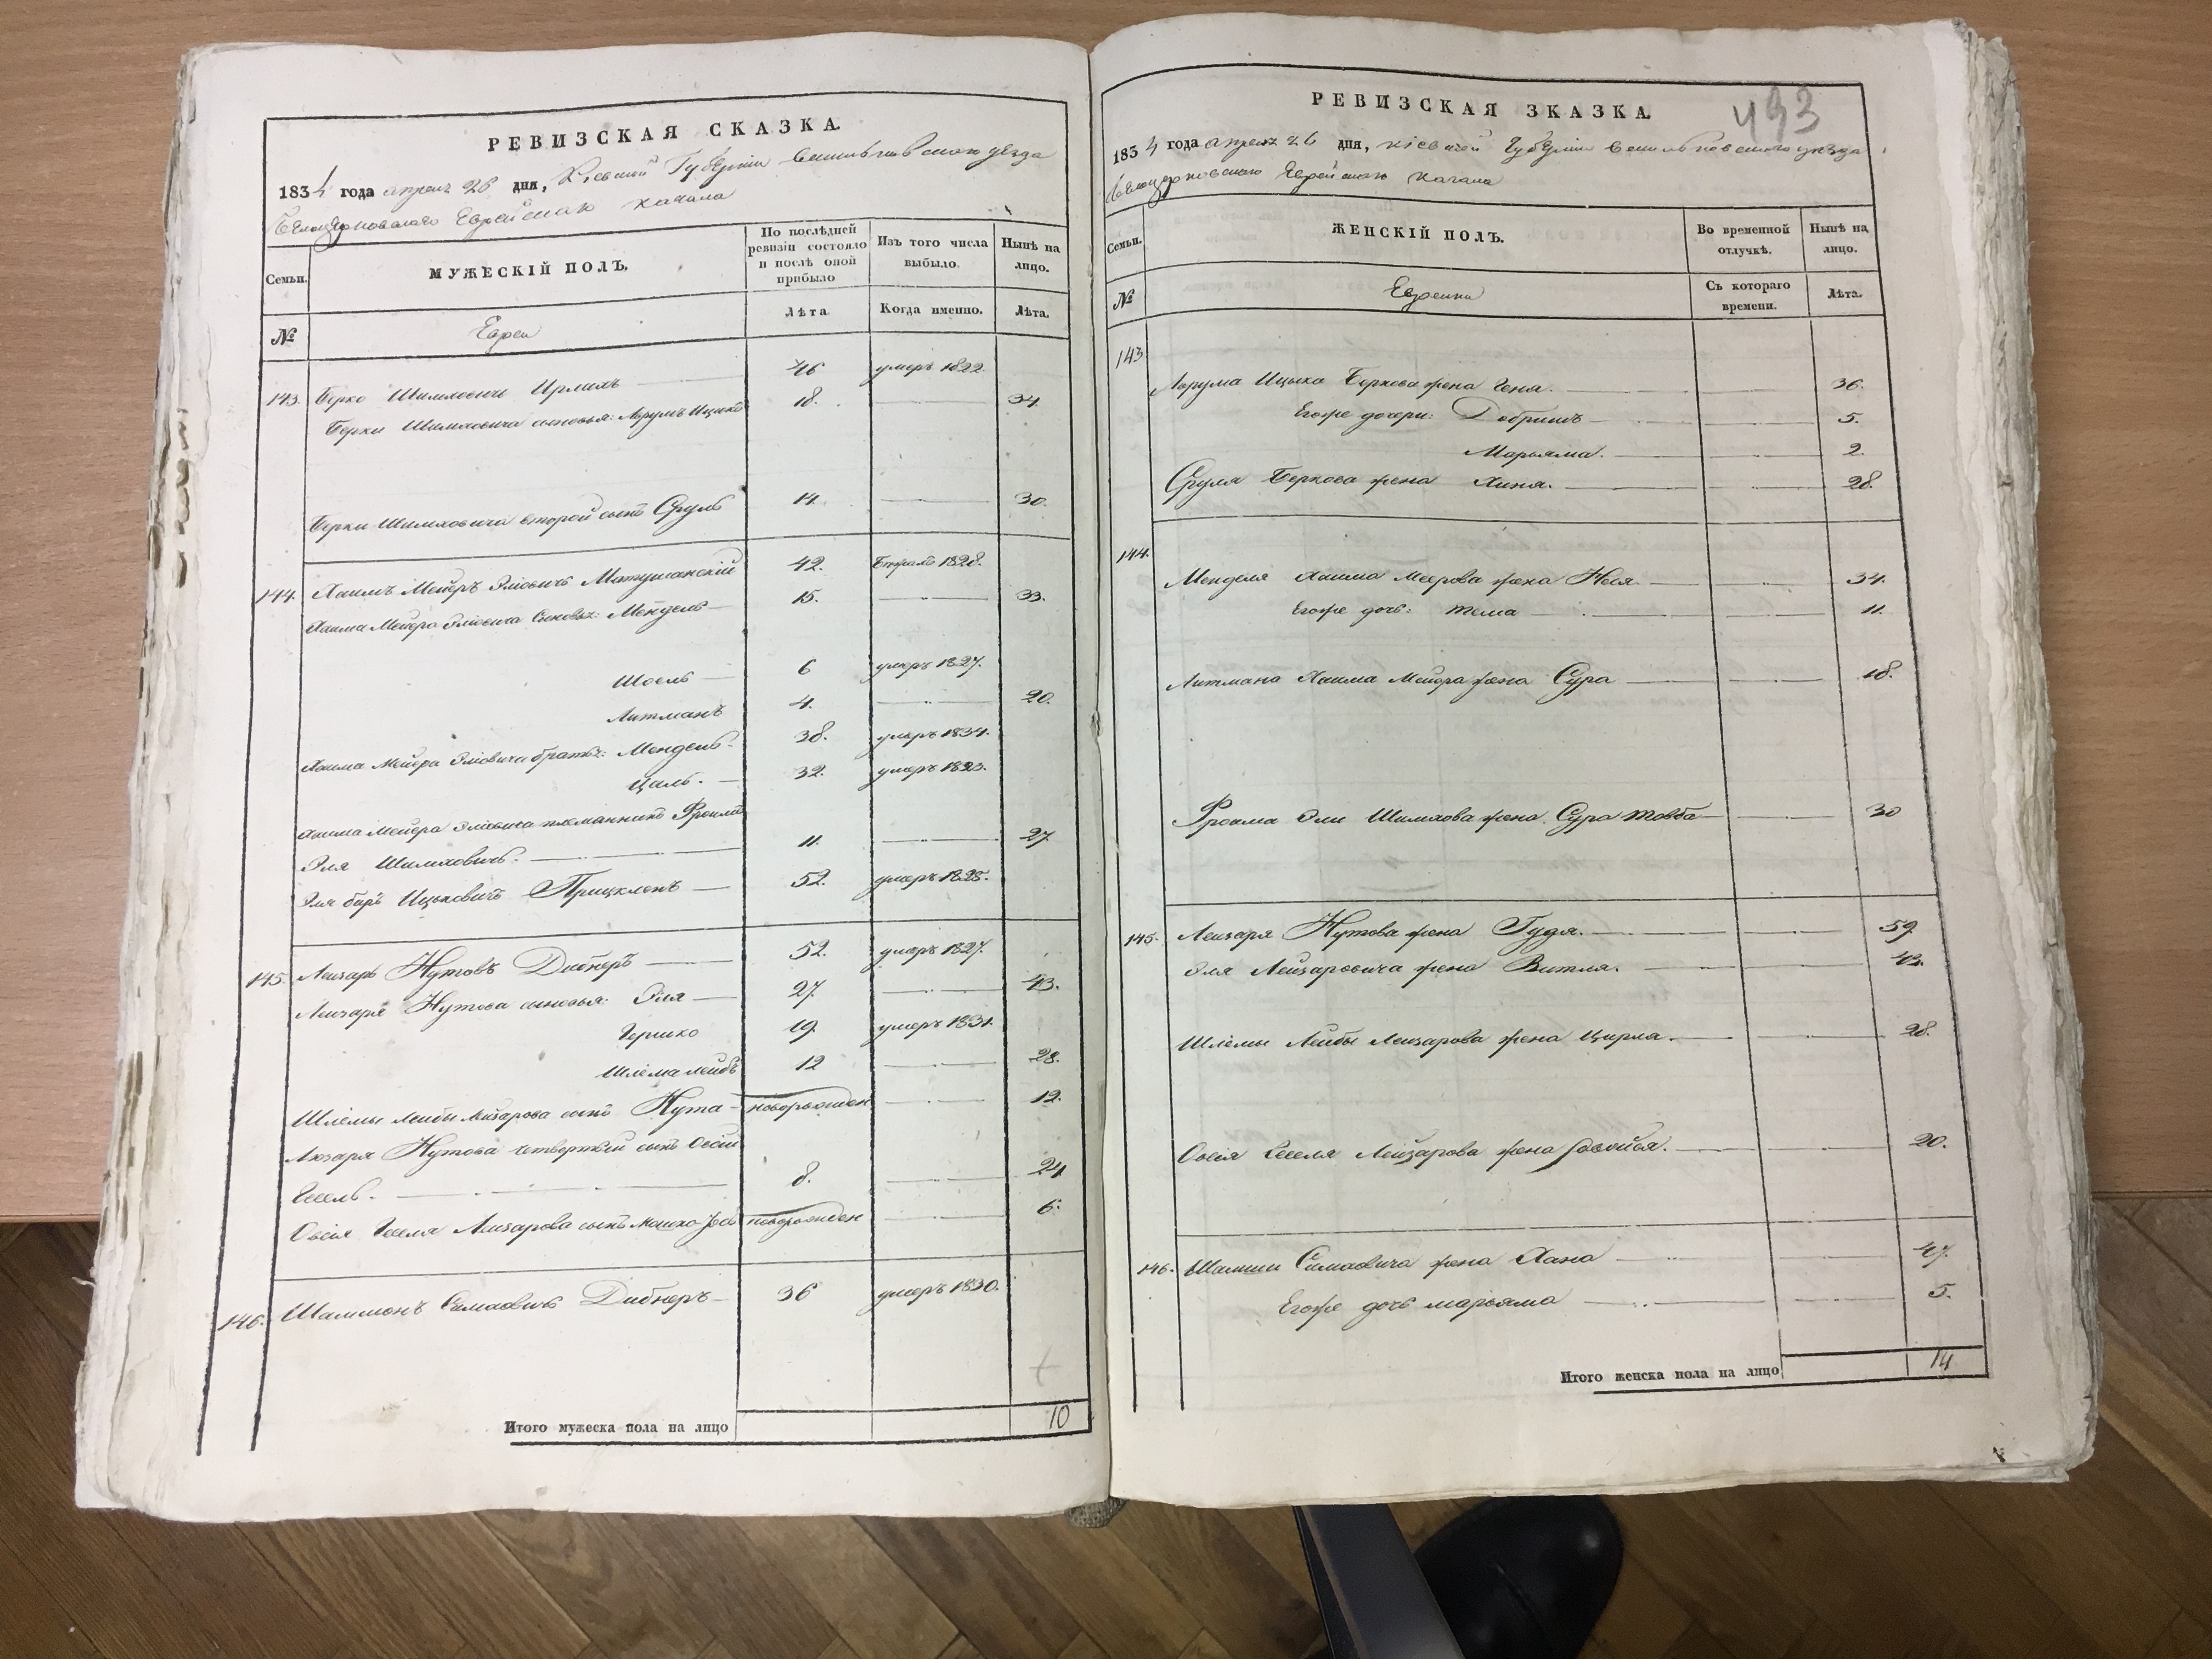 РЕВИЗСКАЯ СКАЗКА.
1834 года апреля 26 дня, Кіевской Губерніи Васильковского уезда
Белоцерковского Еврейского кагала
Семьи.
МУЖЕСКІЙ ПОЛЪ.
По послѣдней ревизіи состояло и послѣ оной прибыло
Изъ того числа выбыло.
Нынѣ на лицо.
№
Евреи
Лѣта.
Когда именно.
Лѣта.
143. Берко Шимховичъ 46 умеръ 1822.
Берки Шимховича сыновья: Аврумъ Ицько 18. 34.
Берки Шимховича второй сынъ Сруль 14. 30.
144. Хаимъ Мейеръ Эліовичъ 42. 1828.
Хаима Мейера Эліовича Сыновья: Мендель 15. 33.
Шоель 6 умеръ 1827.
Литманъ 4. 20.
Хаима Мейера Эліовича братья: Мендель 38. умеръ 1834.
Цаль. 32. умеръ 1823.
Хаима Мейера Эліовича племянникъ Фроимъ
Эля Шимховичъ. 11. 27
Эля Ицьковичъ 52. умеръ 1825.
145. Лейзаръ Нутовъ Дибнеръ 52. умеръ 1827.
Лейзаря Нутова сыновья: Эля 27. 43.
Гершко 19. умеръ 1831.
Шлема лейбъ 12 28.
Шлемы Лейбы Лейзарова сынъ Нута новорожден 12.
Лейзаря Нутова четвертый сынъ Овсій
Іосель. 8. 24
Овсія Іоселя Лейзарова сынъ мошко новорожден 6.
146. Шамшонъ Симховичъ Дибнеръ 36 умеръ 1830.
Итого мужеска пола на лицо 10
РЕВИЗСКАЯ ЗКАЗКА.
493
1834 года апреля 26 дня, Кіевской Губерніи Васильковского уезда
Белоцерковского Еврейского кагала
Семьи.
ЖЕНСКІЙ ПОЛЪ.
Во временной отлучкѣ.
Нынѣ на лицо.
№
Евреики
Съ котораго времени.
Лѣта.
143
Аврума Ицька Беркова жена Геня. 36.
Егоже дочери: Добришъ 5.
Марьяма. 2.
Сруля Беркова жена Хиня. 28.
144.
Менделя Хаима Меерова жена Неся. 34.
Егоже дочь: тема 11.
Литмана Хаима Мейера жена Сура 18.
Фроима Эли Шимхова жена Сура товба 30
145. Лейзаря Нутова жена Гудя. 59.
Эля Лейзаровича жена Витля. 43.
Шлемы Лейбы Лейзарова жена Цирля. 28.
Овсія Іоселя Лейзарова жена 20.
146. Симховича жена Хана 47.
Егоже дочь марьяма 5.
Итого женска пола на лицо 14